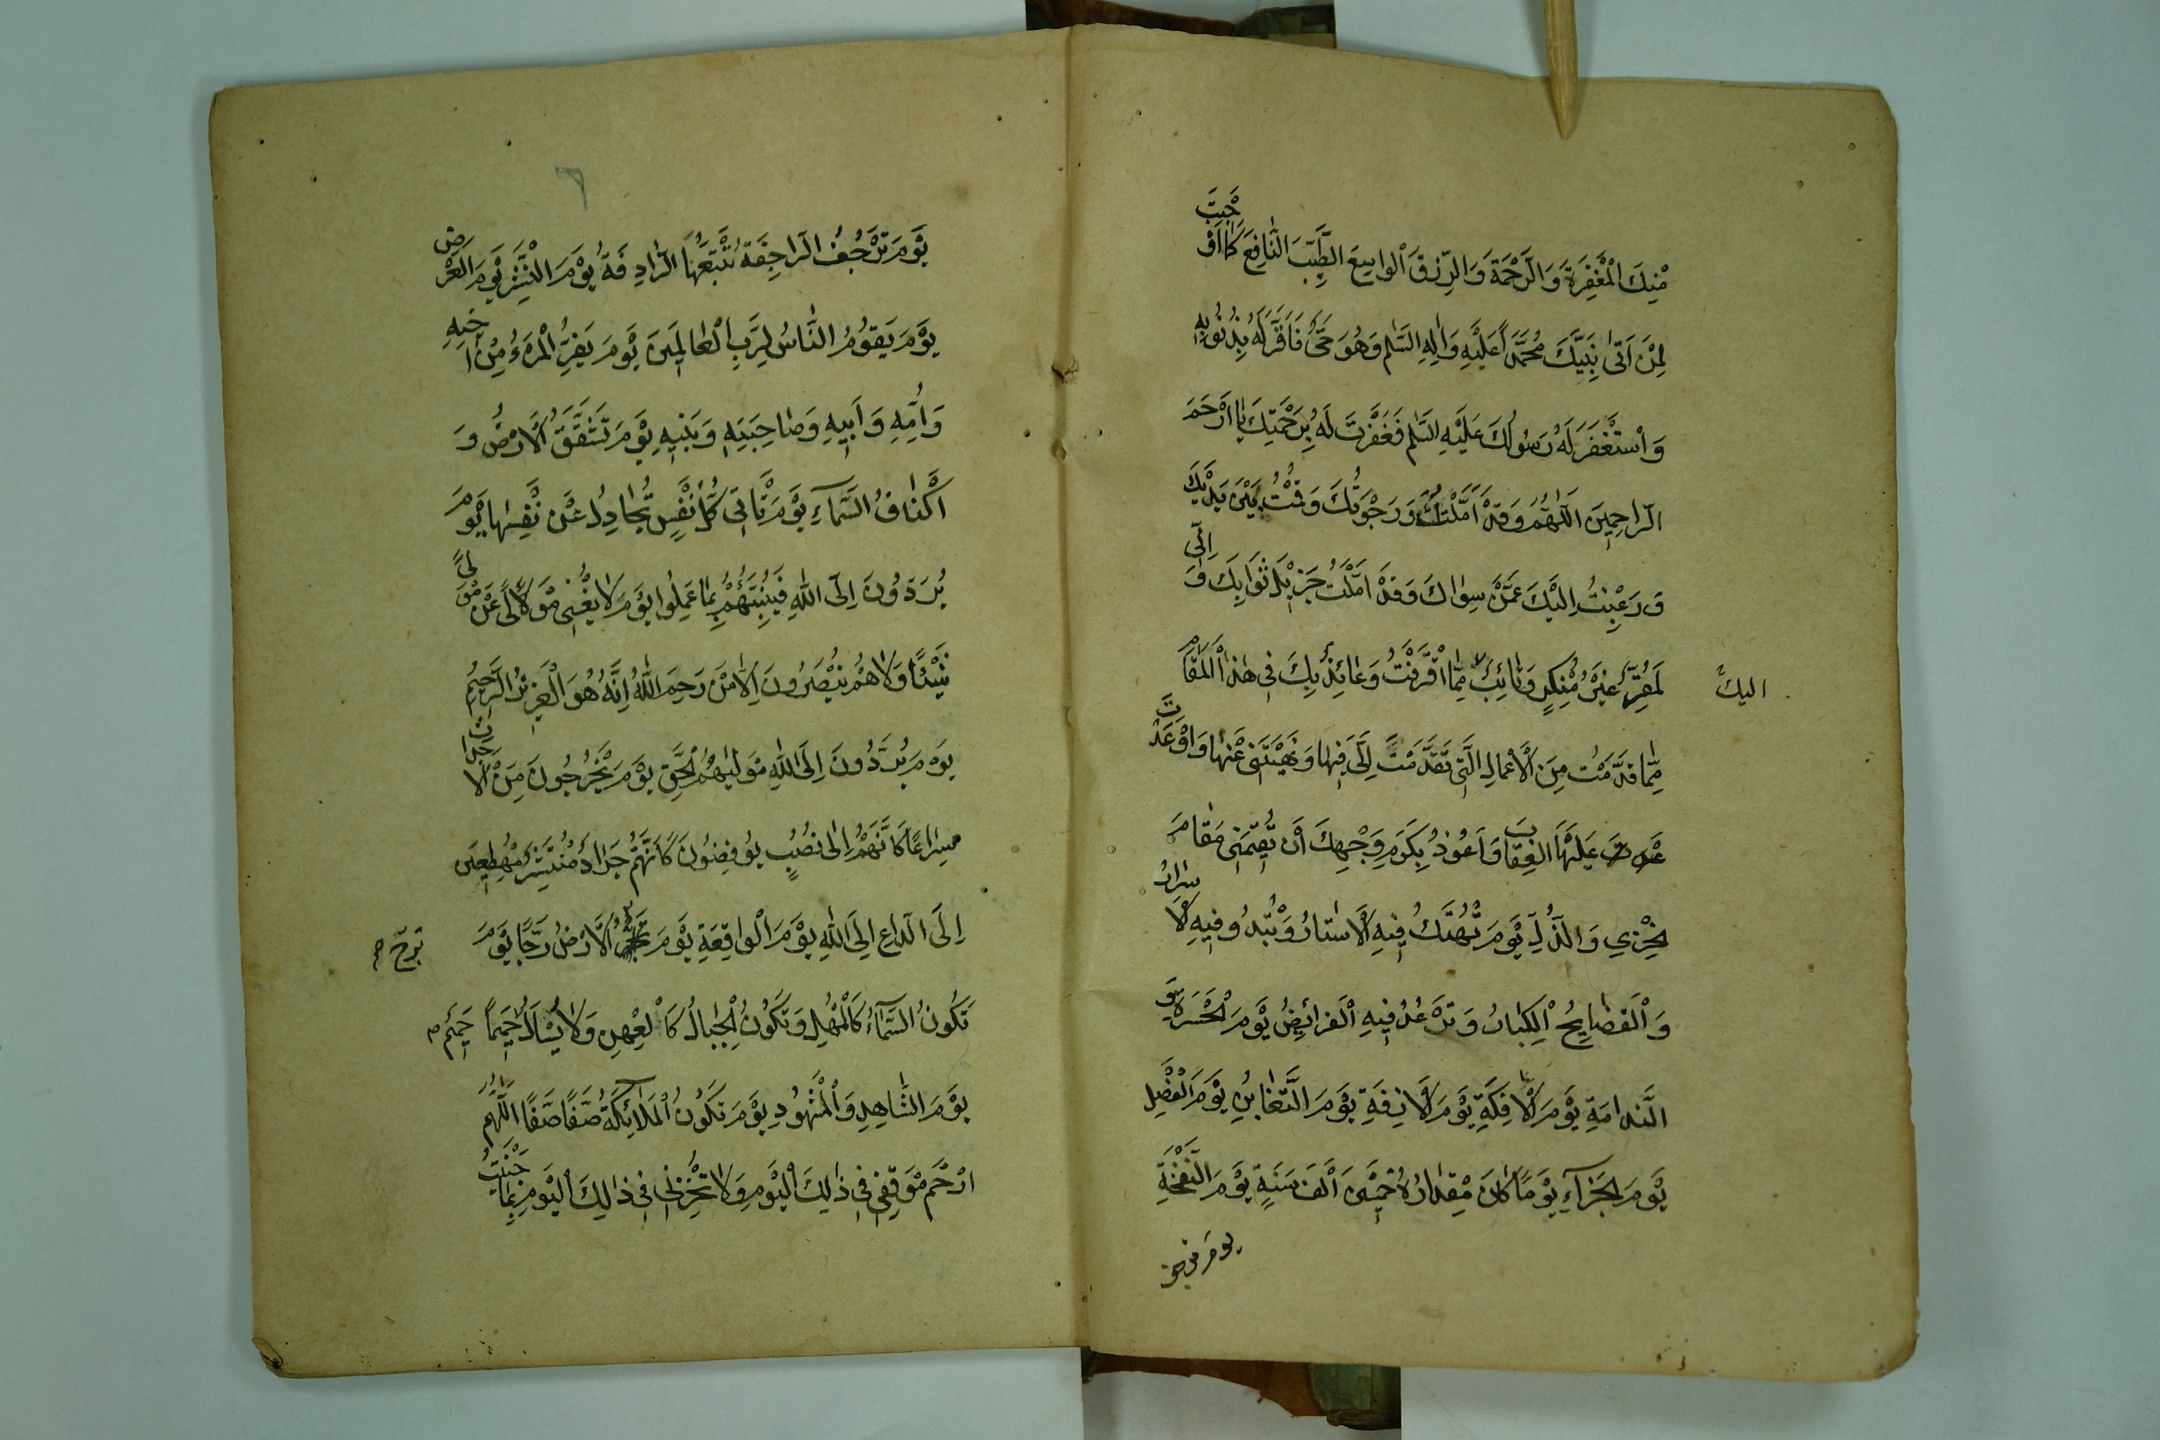 مِنْكَ الْمَغْفِرَةَ وَالرَّحْمَةَ وَالرِّزْقَ الْوٰاسِعَ الطَّيِّبَ النّٰافِعَ كَمٰا اَوْجَبْتَ
لِمَنْ اَتىٰ نَبِيَّكَ مُحَمَّدًا عَلَيْهِ وَاٰلِهِ السَّلٰم وَهُوَ حَىٌّ فَاَقَرَّ لَهُ بِذُنُوبِهِ
وَاسْتَغْفَرَ لَهُ رَسُولُكَ عَلَيْهِ السَّلٰم فَغَفَرْتَ لَهُ بِرَحْمَتِكَ يٰا اَرْحَمَ
الرّٰاحِمِينَ اَللّٰهُمَّ وَقَدْ اَمَّلْتُكَ وَرَجَوْتُكَ وَقُمْتُ بَيْنَ يَدَيْكَ
وَرَغِبْتُ اِلَيْكَ عَمَّنْ سِوٰاكَ وَقَدْ اَمَّلْتُ جَزِيْلَ ثَوٰابِكَ وَ اِنّى
لَمُقِرٌّ غَيْرُ مُنْكِرٍ وَتٰائِبٌ مِمَّا اقْتَرَفْتُ وَعٰائِذٌ بِكَ فِى هٰذَا الْمَقٰامِ
اليك
مِمّٰا قَدَّمْتُ مِنَ الْاَعْمٰالِ الَّتِى تَقَدَّمْتَ اِلَىَّ فِيهٰا وَنَهَيْتَنِى عَنْهٰا وَاَوْعَدْتَ
عَلَيْهَا الْعِقٰابَ وَاَعُوذُ بِكَرَمِ وَجْهِكَ اَنْ تُقِيمَنِى مَقٰامَ
الْخِزْىِ وَالذُّلِّ يَوْمَ تُهْتَكُ فِيهِ الْاَسْتٰارُ وَتُبْدُو فِيهِ الْاَسْرٰارُ
وَالْفَضٰايِحُ الْكِبٰارُ وَتَرْعُدُ فِيهِ الْفَرٰائِصُ يَوْمَ الْحَسْرَةِ وَ
النَّدٰامَةِ يَوْمَ الْاٰفِكَةِ يَوْمَ الْاٰزِفَةِ يَوْمَ التَّغٰابُنِ يَوْمَ الْفَصْلِ
يَوْمَ الْجَزٰآءِ يَوْمًا كٰانَ مِقْدٰارُهُ خَمْسِينَ اَلْفَ سَنَةٍ يَوْمَ النَّفْخَةِ
يوم ترجف
٦
يَوْمَ تَرْجُفُ الرّٰاجِفَةُ تَتْبَعُهَا الرّٰادِفَةُ يَوْمَ النَّشْرِ يَوْمَ الْعَرْضِ
يَوْمَ يَقُومُ النّٰاسُ لِرَبِّ الْعٰالَمِينَ يَوْمَ يَفِرُّ الْمَرْءُ مِنْ اَخِيهِ
وَاُمِّهِ وَاَبِيهِ وَصٰاحِبَتِهِ وَبَنِيهِ يَوْمَ تَشَقَّقُ الْاَرْضُ وَ
اَكْنٰافُ السَّمٰآءِ يَوْمَ تَاْتِى كُلُّ نَفْسٍ تُجٰادِلُ عَنْ نَفْسِهٰا يَوْمَ
يُرَدُّونَ اِلَى اللّٰهِ فَيُنَبِّئُهُمْ بِمٰا عَمِلُوا يَوْمَ لٰا يُغْنِى مَوْلًى عَنْ مَوْلًى
شَيْئًا وَلٰا هُمْ يُنْصَرُونَ اِلّٰا مَنْ رَحِمَ اللّٰهُ اِنَّهُ هُوَ الْعَزِيزُ الرَّحِيمُ
يَوْمَ يُرَدُّونَ اِلَى اللّٰهِ مَوْلٰيهُمُ الْحَقِّ يَوْمَ يَخْرُجُونَ مِنَ الْاَجْدٰاثِ
سِرٰاعًا كَاَنَّهُمْ اِلىٰ نُصُبٍ يُوفِضُونَ كَاَنَّهُمْ جَرٰادٌ مُنْتَشِرٌ مُهْطِعِينَ
اِلَى الدّٰاعِ اِلَى اللّٰهِ يَوْمَ الْوٰاقِعَةِ يَوْمَ تُرَجُّ الْاَرْضُ رَجًّا يَوْمَ
ترجّ
تَكُونُ السَّمٰآءُ كَالْمُهْلِ وَتَكُونُ الْجِبٰالُ كَالْعِهْنِ وَلٰا يُسْاَلُ حَمِيمٌ حَمِيمًا
يَوْمَ الشّٰاهِدِ وَالْمَشْهُودِ يَوْمَ تَكُونُ الْمَلٰائِكَةُ صَفًّا صَفًّا اَللّٰهُمَّ
ارْحَمْ مَوْقِفِى فِى ذٰلِكَ الْيَوْمِ وَلٰا تُخْزِنِى فِى ذٰلِكَ الْيَوْمِ بِمٰا جَنَيْتُ